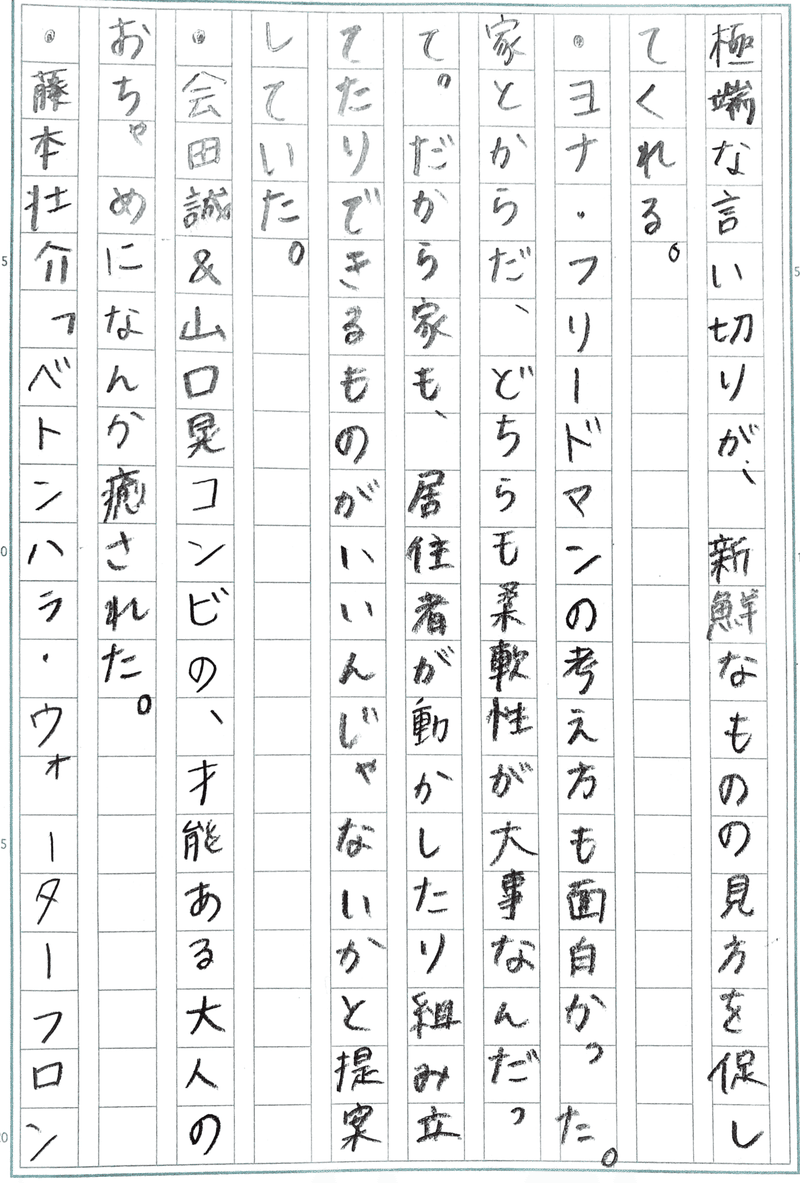 極端な言い切りが、新鮮なものの見方を促し
てくれる。
・ヨナ・フリードマンの考え方も面白かった。
家とからだ、どちらも柔軟性が大事なんだっ
て。だから家も、居住者が動かしたり組み立
てたりできるものがいいんじゃないかと提案
していた。
・会田誠&山口晃コンビの、才能ある大人の
おちゃめになんか癒された。
・藤本壮介「ベトンハラ・ウォーターフロン
5
10
15
20
5